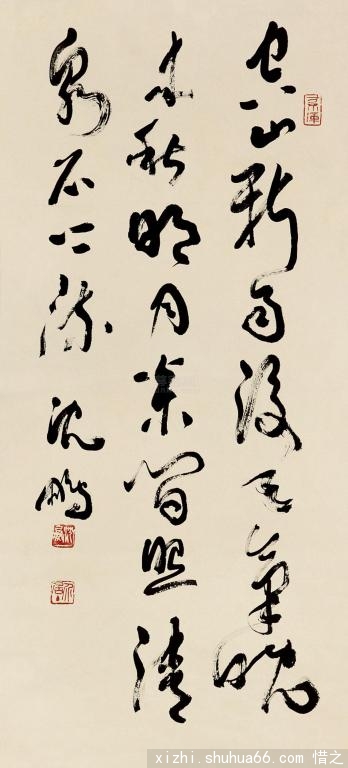 空山新雨後天氣晚
来秋明月松間照清
泉石上流 沈鵬
xizhi.shuhua66.com 惜之